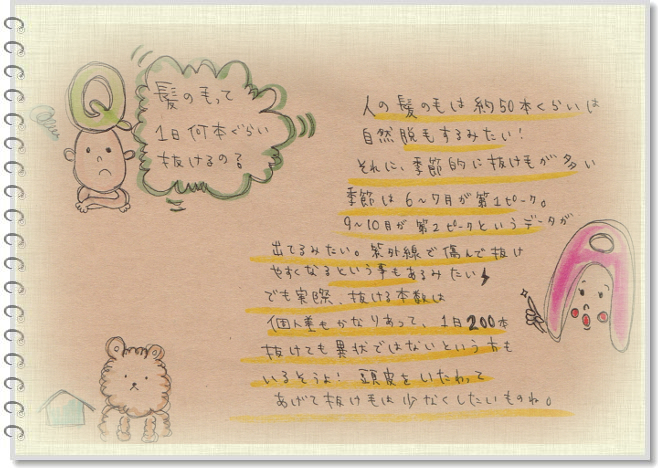 Q
髪の毛って
1日何本ぐらい
抜けるの?
人の髪の毛は約50本くらいは
自然脱毛するみたい!
それに、季節的に抜けもが多い
季節は6~7月が第1ピーク。
9~10月が第2ピークというデータが
出てるみたい。紫外線で傷んで抜け
やすくなるという事もあるみたい
でも実際、抜ける本数は
個人差もかなりあって、1日200本
抜けても異状ではないという方も
いるそうよ!頭皮をいたわって
あげて抜け毛は少なくしたいものね。
A